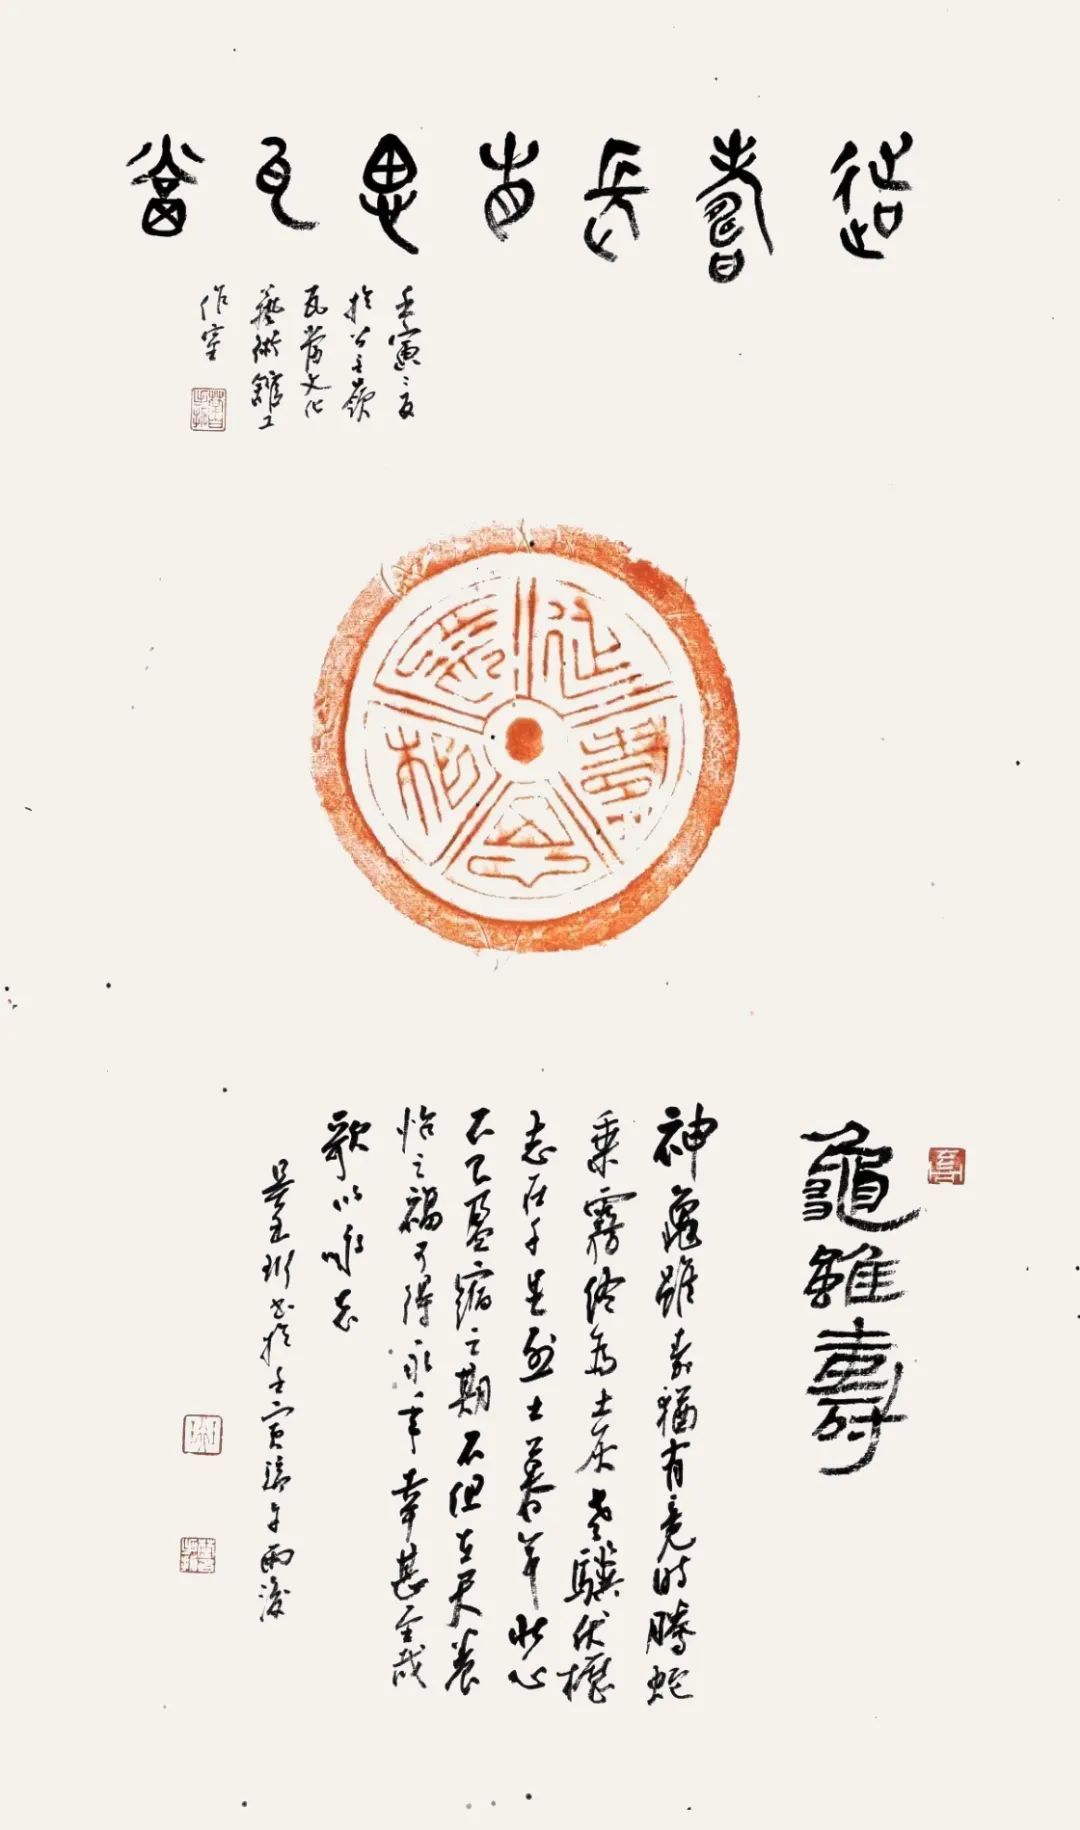 延壽長相思瓦當
壬寅之夏
於公主嶺
瓦當文化
藝術館工
作室
延壽長相思
龜雖壽
神龜雖壽猶有竟時騰蛇
乘霧終為土灰老驥伏櫪
志在千里烈士暮年壯心
不已盈縮之期不但在天養
怡之福可得永年幸甚至哉
歌以咏志
吳玉珩書於壬寅端午雨後